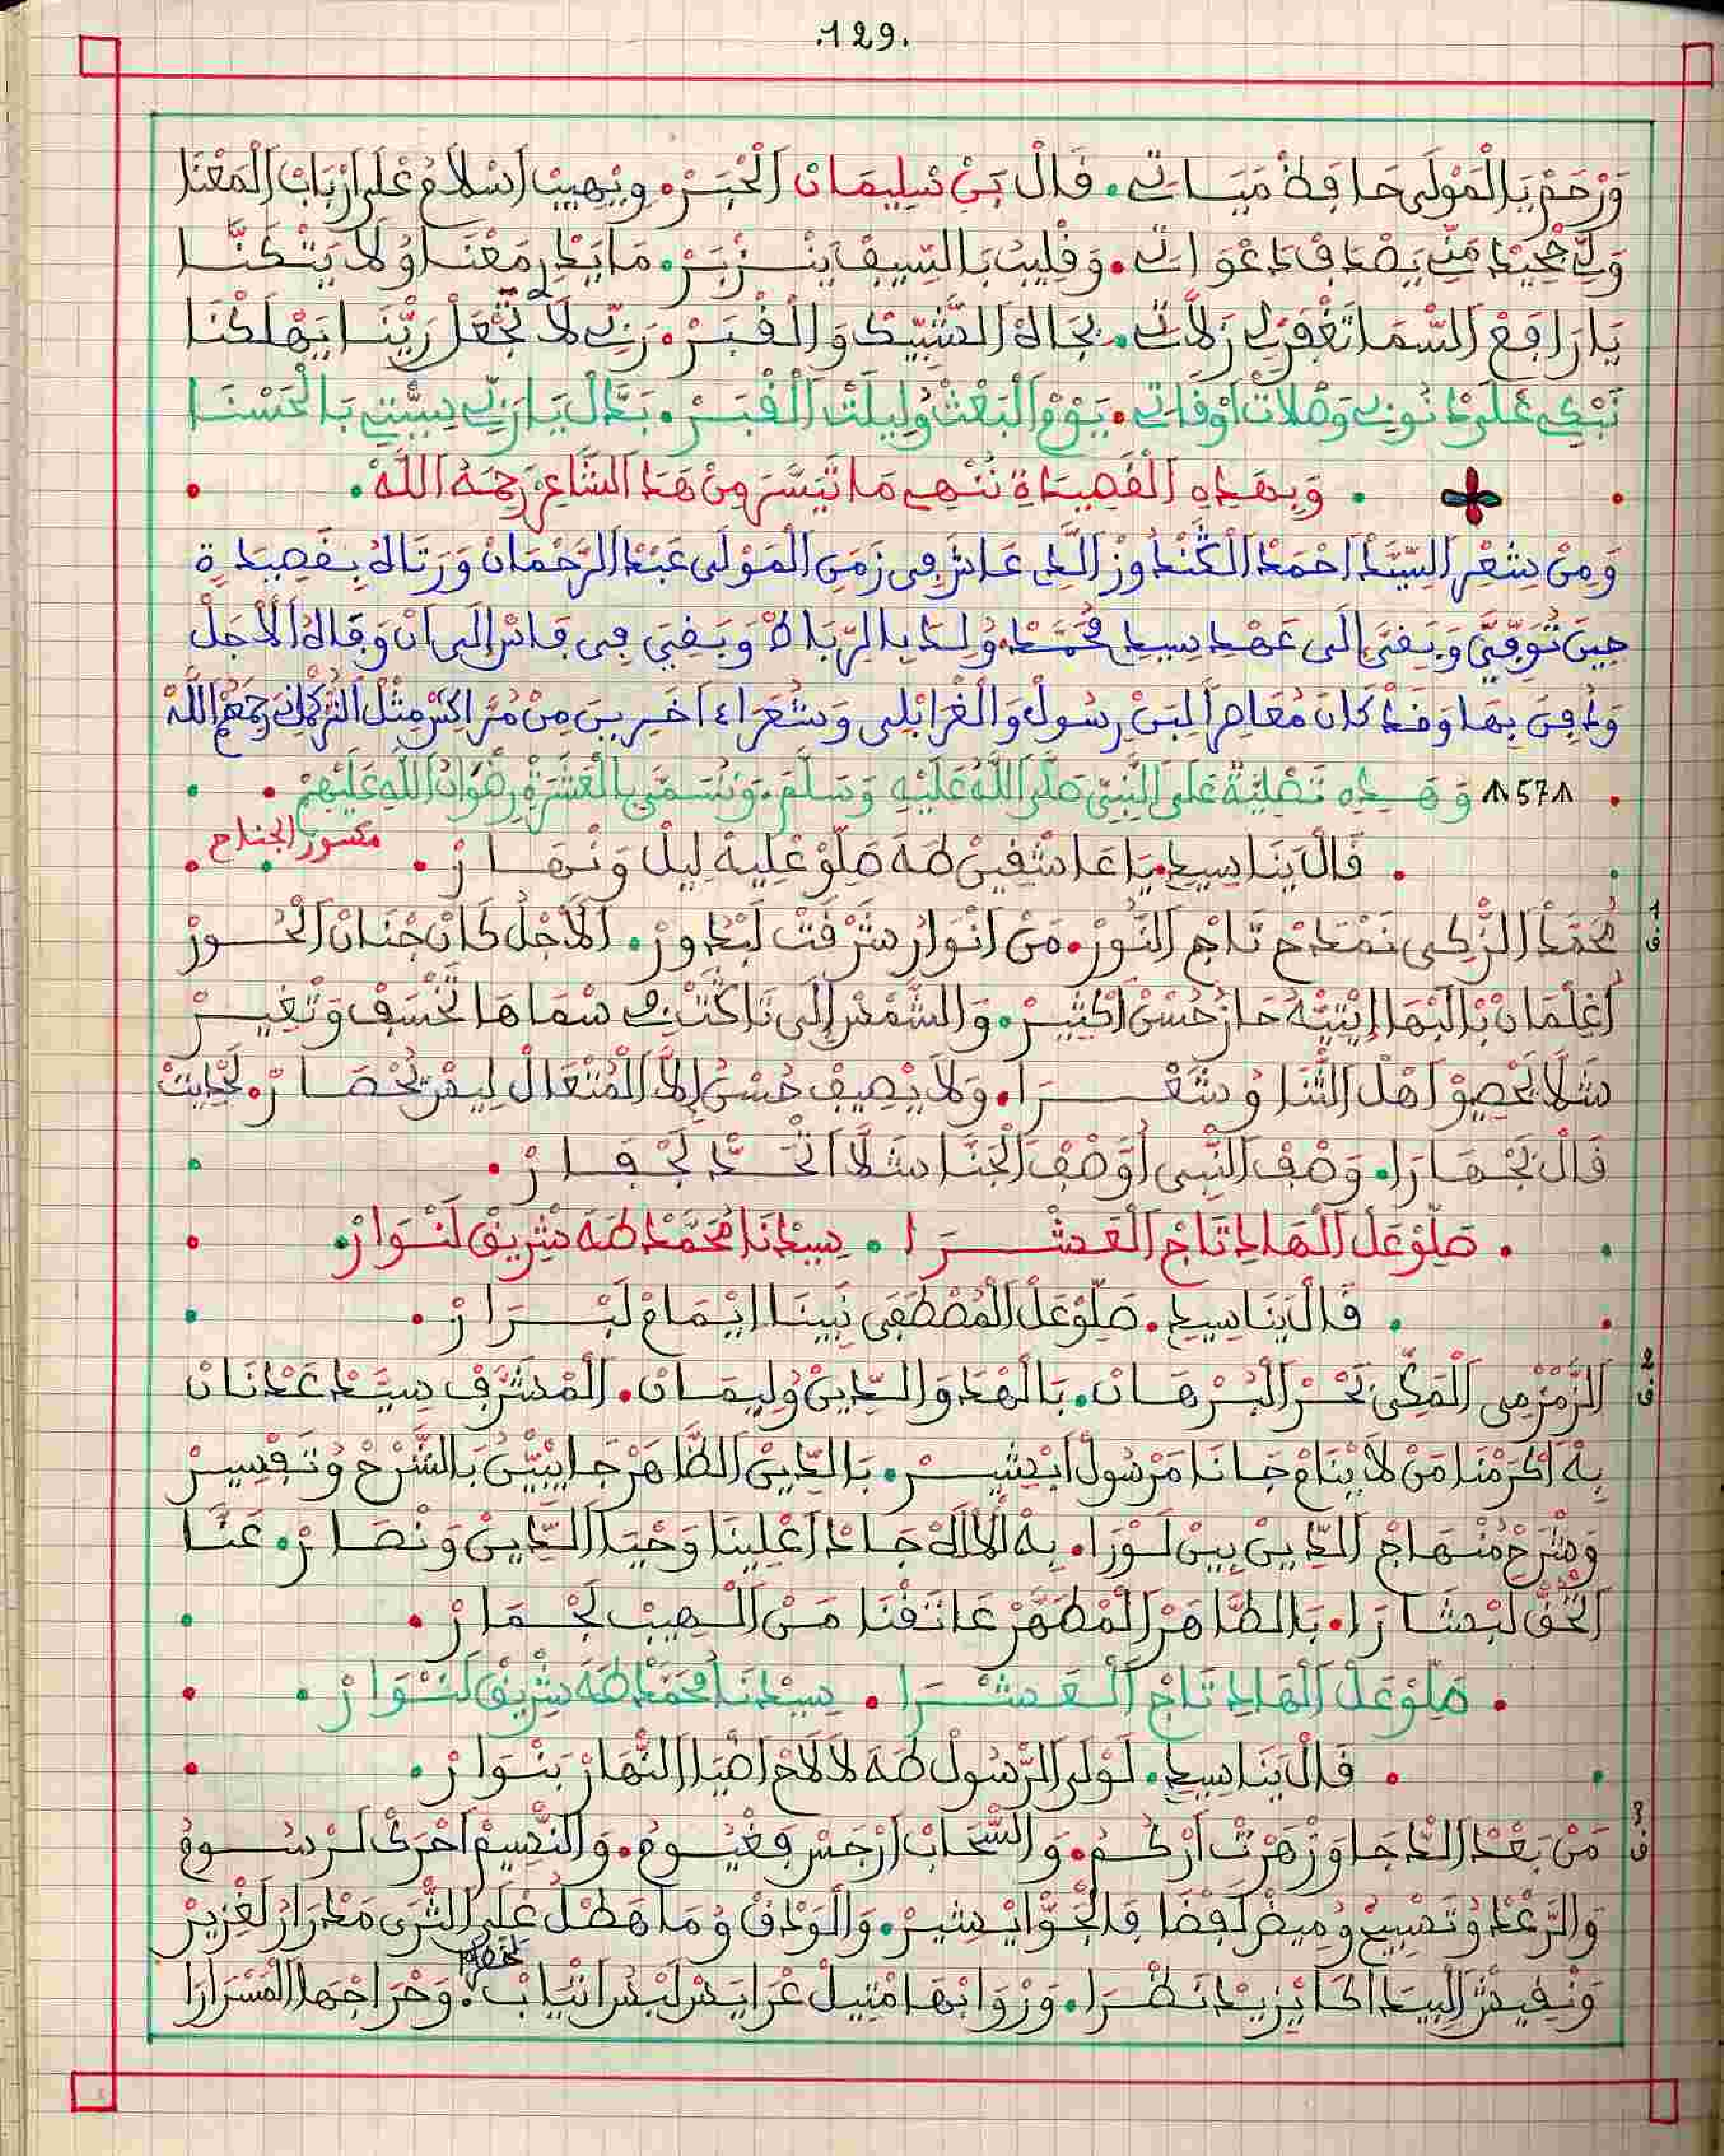 .129.
وَرْحَمْ يَالْمَوْلَى حَافِظْ مَيَاتِي. قَالْ بَنْ سْلِيمَانْ الْخْبَرْ. وِيْهِيبْ اسْلَامُ عْلَى ارْبَابْ الْمَعْنَا
وَلِّي جْحِيدْ مَنِّي يَصْدَافْ دَعْوَاتِي. وَقْلِيبْ بَالسِّيفْ يَنْزْبَرْ. مَا يَدْرِ مَعْنَا وُلَا يَتْكَنَّا
يَا رَافَعْ السَّمَا تَغْفَرْ لِي زَلَّاتِي. بجَاهْ الشّْبِيكْ وَالْقْبَرْ. رَبِّي لَا تَجْعَلْ رَيْنَا يَهْلَكْنَا
نَبْكِي عْلَى دْنُوبِي وَصْلَاتْ اوْقَاتِي. يَوْمْ الْبَعْثْ وُلِيلْتْ الْقْبَرْ. بَدَّالْ يَا رَبِّي سِيّْتِي بَالْحَسْنَا
. وَبِهَذِهِ الْقَصِيدَةِ نُنْهِي مَا تَيَسَّرَ مِنْ هَذَا الشَّاعِرِ رَحِمَهُ اللَّهْ.
وَمِنْ شِعْرِ السَّيِّدْ اَحْمَدْ الْكَنْدُوزْ الَّذِي عَاشَ فِي زَمَنِ الْمَوْلَى عَبْدْ الرَّحْمَانْ وَرَتَاهُ بِقَصِيدَةٍ
حِينَ تُوُفِّيَ وَبَقِيَ إِلَى عَهْدِ سِيدِي مُحَمَّدْ وُلِدَ بِالرِّبَاطْ وَبَقِيَ فِي فَاسْ إِلَى أَنْ وَفَاهُ الْأَجَلْ
وَدُفِنَ بِهَا وَقَدْ كَانَ مُعَاصِراً لِبَنْ رسُولْ وَالْغْرَابْلِي وَشُعَرَاءَ اخَرِينَ مِنْ مُرَّاكشْ مِثْلَ التُّرْكُمَانِي رَحِمَهُمُ اللَّهْ
. ٨57٨ وَهَذِهِ تَصْلِيَةٌ عَلَى النَّبِيّ صَلَّى اللَّهُ عَلَيْهِ وَسَلَّمْ. وَتُسَمَّى بِالْعَشَرَةْ رِضْوَانُ اللَّهِ عَلَيْهِمْ.
مكسور الجناح
. قَالْ يَنَا سِيدِي. يَا عَاشْقِينْ طَهَ صَلِّوْ عْلِيهْ لِيلْ وَنْهَارْ.
ق.1
مُحَمَّدْ الزّْكِي نَمْدَحْ تَاجْ النُّورْ. مَنْ اَنْوَارُ شَرْقَتْ لَبْدُورْ. اَلْاَجْلُ كَانْ جْنَانْ الْحُورْ
اُغِلْمَانْ بَالْبْهَا إِيْتِيهْ حَازْ حُسْنْ اكْثِيرْ. وَالشَّمْسْ إِلَى تَاكْتْبْ فِي سْمَاهَا تَخْسَفْ وَتْغِيرْ
شَلَّا يَحْصِوْ اهْلْ الثّْنَا وُشَعْرَا. وَلَا يْصِيفْ حُسْنُ إِلَّا الْمُتْعَالْ لِيسْ يُحْصَارْ. لَحْدِيثْ
قَالْ بَجْهَارَا. وَصْفْ النّْبِي اُوَصْفْ الْجْنَا شَلَّا اتْحَدُّ لَجْفَارْ.
. صَلِّوْ عَلْ الْهَادِي تَاجْ الْعَشْرَا. سِيدْنَا مُحَمَّدْ طَهَ شْرِيقْ لَنْوَارْ.
. قَالْ يَنَا سِيدِي. صَلِّوْ عَلْ الْمُصْطَفَى نَبِينَا اِيْمَامْ لَبْرَارْ.
ق.2
الزَّمْزْمِي الْمَكِّي بَحْرْ الْبُرْهَانْ. بَالْهْدَ وَالدِّينْ وُلِيمَانْ. الْمْشَرَّفْ سِيّدْ عَدْنَانْ
بِهْ اكْرَمْنَا مَنْ لَا يْنَامْ جَانَا مَرْسُولْ ابْشِيرْ. بَالدِّينْ الظَّاهَرْ جَا يْبَيَّنْ بَالشَّرْحْ وُتَفْسِيرْ
وَشْرَحْ مُنْهَاجْ الدِّينْ بِينْ لَوْرَا. بِهْ الْالَهْ جَادْ اعْلِينَا وَحْيَا الدِّينْ وَنْصَارْ. عَنَّا
الْحَقْ لَبْشَارَا. بَالطَّاهَرْ الْمْطَهَّرْ عَاتَقْنَا مَنْ الْهِيبْ لَجْمَارْ.
. صَلِّوْ عَلْ الْهَادِي تَاجْ الْعَشْرَا. سِيدْنَا مُحَمَّدْ طَهَ شْرِيقْ لَنْوَارْ.
. قَالْ يَنَا سِيدِي. لَوْلَى الرَّسُولْ طَهَ لَا لَاحْ اضْيَا النّْهَارْ بَنْوَارْ.
ق.3
مَنْ بَعْدْ الدّْجَا وَزْهَرْتْ ارْكُمْ. وَالسّْحَابْ ارْجَسْ فَغْيُومُ. وَالنّْسِيمْ احْرَكْ لَرْسُومُ
وَالرَّعْدْ وُتَصْبِيحْ وُمِيضْ لَفْضَا فَالْجَوَّ ايْشِيرْ. وَالْوَدْقْ وُمَا هَطْلْ عْلَى الثّْرَى مَدْرَارْ لَغْزِيرْ
وَنْفِيشْ الْبِيدَا كَا يْزِيدْ نَضْرَا. وَرْوَابْهَا مْتِيلْ عْرَايَسْ لَبْسْ اتْيَابْ. وَحْرَاجْهَا الْمَسْرَارَا